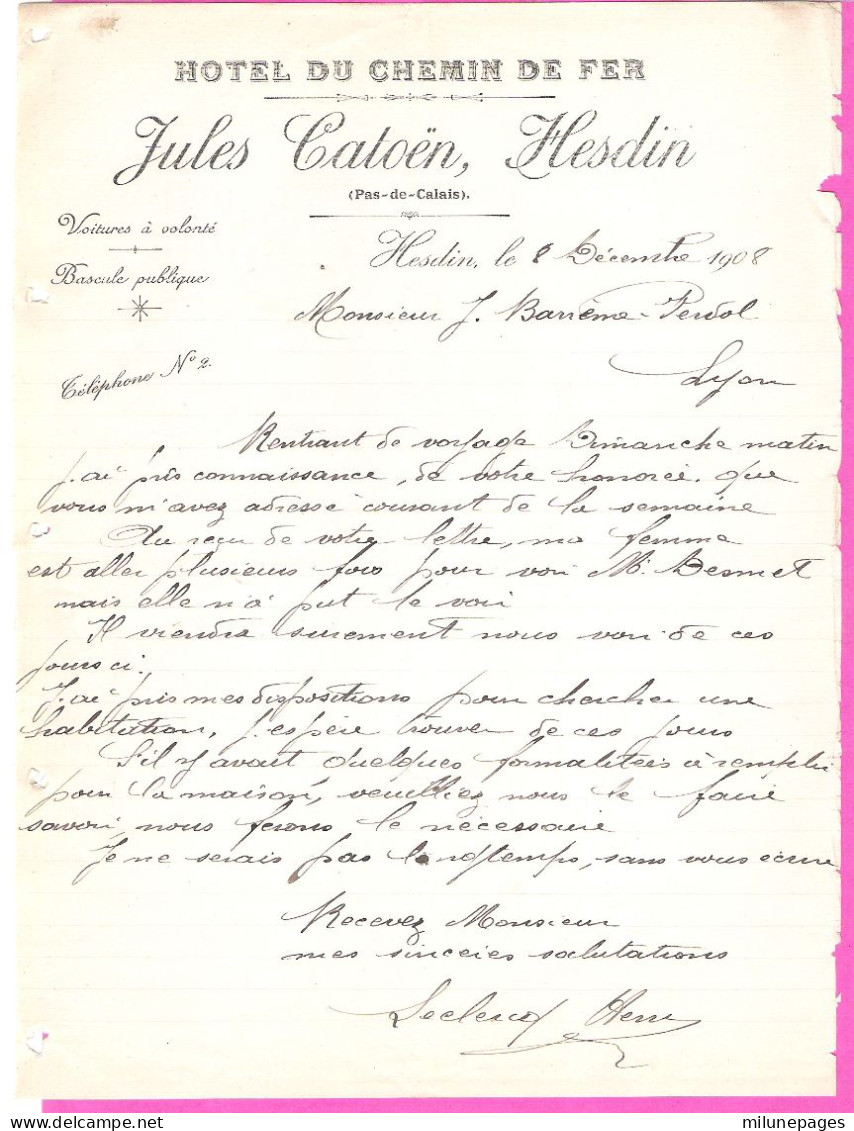 HOTEL DU CHEMIN DE FER
Jules Catoën, Hesdin
(Pas-de-Calais).
Voitures à volonté
Bascule publique
Téléphone Nº 2.
Hesdin, le 8 Décembre 1908
Monsieur J. Barrème-Perdol
Lyon
Rentrant de voyage Dimanche matin
j'ai pris connaissance, de votre honorée. que
vous m'avez adressé courant de la semaine
Au reçu de votre lettre, ma femme
est aller plusieurs fois pour voir Mr Besmet
mais elle n'a put le voir
Il viendra surement nous voir de ces
jours ci.
J'ai pris mes dispositions pour chercher une
habitation, j'espère trouver de ces jours
S'il y avait quelques formalitées à remplir
pour la maison, veuilliez nous le faire
savoir, nous ferons le nécessaire
Je ne serais pas longtemps, sans vous écrire
Recevez Monsieur
mes sincères salutations
Leclercq Henri
milunepages